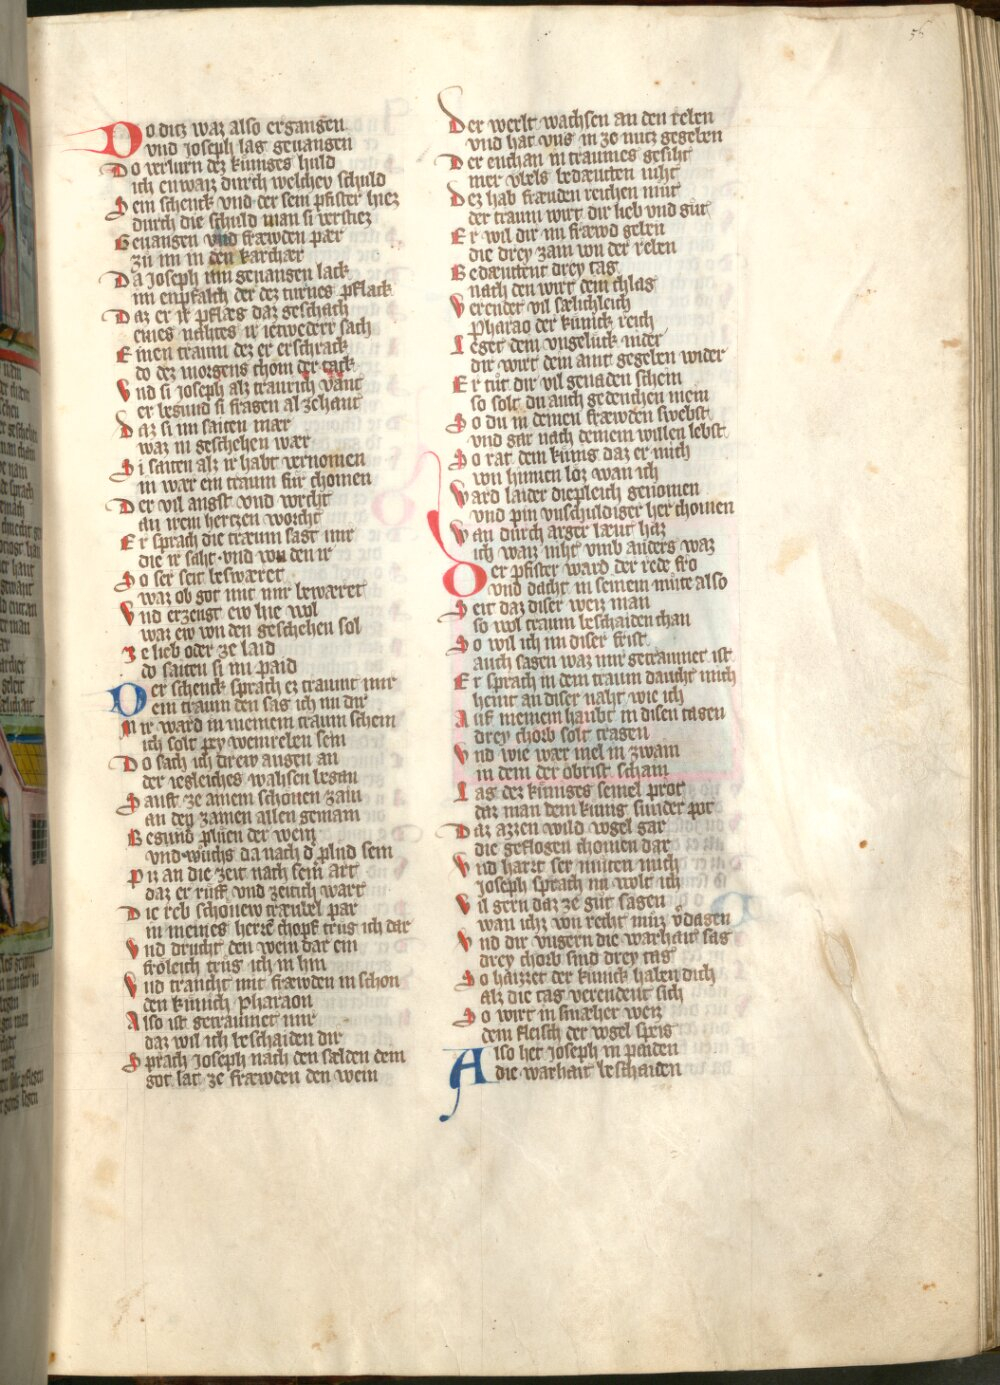 56
Do ditz waz also ergangen
vnd ioseph lag geuangen
Do verlurn dez küniges huld
ich enwaiz durch welchev schuld
Sein schenck vnd der sein pfister hiez
durch die schuld man si verstiez
Geuangen vnd fræwden pær
zü im in den karchær
Da Joseph inn geuangen lack
im enpfalch der dez turnes pflack
Daz er ir pflæg daz geschach
eines nahtes ir ietweder sach
Einen traum dez er erschrack
do dez morgens chom der tack
Vnd si ioseph alz traurich vant
er begund si fragen al zehant
Daz si im saiten mær
waz in geschehen wær
Si saiten alz ir habt vernomen
in wær ein traum für chomen
Der vil angst vnd vorcht
an irem hertzen worcht
Er sprach die træum sagt mir
die ir saht vnd von den ir
So ser seit beswæret
waz ob got mit mir bewæret
Vnd erzeugt ew hie wol
waz ew von den geschehen sol
Ze lieb oder ze laid
do saiten si im paid
Der schenck sprach ez traumt mir
ein traum den sag ich nu dir
Mir ward in meinem traum schein
ich solt pey weinreben sein
Do sach ich drew augen an
der iegleiches wahsen began
Sauft ze ainem schonen zain
an den zainen allen gemain
Begund plüen der wein
vnd wuchs da nach d plud sein
Piz an die zeit nach seiner art
daz er ruff vnd zeitich wart
Die reb schonew træubel par
in meines herrē chopf trüg ich dar
Vnd drucht den wein dar ein
fröleich trüg ich in hin
Vnd trancht mit fræwden in schon
den künich pharaon
Also ist getraumet mir
daz wil ich beschaiden dir
Sprach Joseph nach den sælden dem
got lat ze fræwden den wein
Der werlt wachsen an den reben
vnd hat vns in zo nutz gegeben
Der enchan in traumes gesiht
mer vbels bedæuten niht
Dez hab fræuden reichen müt
der traum wirt dir lieb vnd güt
Er wil dir im fræwd geben
die drey zain von der reben
Bedæutent drey tag
nach den wirt dein chlag
Verender vil sælichleich
Pharao der künick reich
Leget dein vngelück nider
dir wirt dein amt gegeben wider
Er tüt dir vil genaden schein
so solt du auch gedenchen mein
So du in deinen fræwden swebst
vnd gar nach deinem willen lebst
So rat dem künig daz er mich
von hinnen loz wan ich
Ward laider diepleich genomen
vnd pin vnschuldiger her chomen
Wan durch arger læut haz
ich waiz niht vmb anders waz
Der pfister ward der rede fro
vnd dacht in seinem müte also
Seit daz diser weiz man
so wol traum beschaiden chan
So wil ich im diser frist
auch sagen waz mir getraumet ist
Er sprach in dem traum daucht mich
heint an diser naht wie ich
Auf meinem haubt in disen tagen
drey chorb solt tragen
Vnd wie wær mel in zwain
in dem der obrist schain
Lag dez küniges semel prot
daz man dem künig sunder pot
Daz azzen wild vogel gar
die geflogen chomen dar
Vnd hazzt ser müten mich
Joseph sprach nu wolt ich
Vil gern daz ze güt sagen
wan ichz von recht müz v̊dagen
Vnd dir vngern die warhait sag
drey chorb sind drey tag
So haizzet der künick hahen dich
Alz die tag verendent sich
So wirt in smæher weiz
dein fleisch der vogel speis
Also het Joseph in paiden
die warhait beschaiden